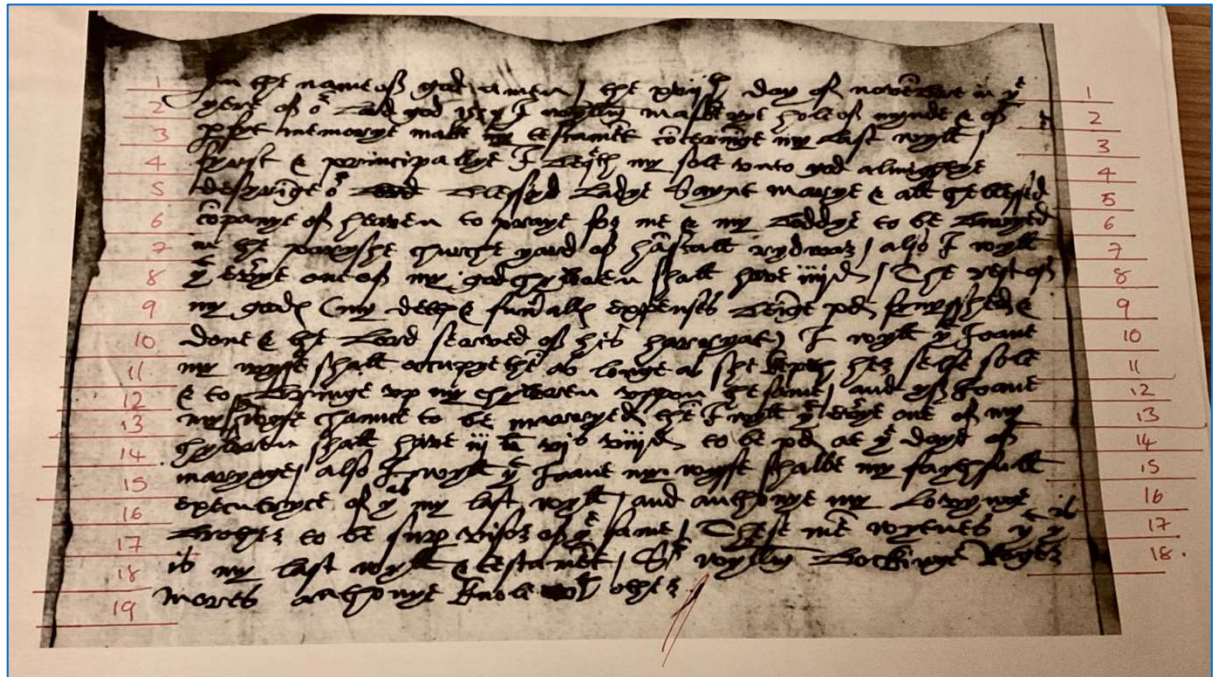 1 In the name of god amen / the xviijth day of november in ye 1
2 yere of or Lord god 15 I make hole of mynde & of 2
3 pfyt memorye make my testament coteninge my last wyll / 3
4 fyrst & principallye I beqth my soll unto god almyghtye 4
5 desyringe or blessyd Ladye Saynt marye & all the blessed 5
6 copanye of heaven to praye for me & my boddye to be buryed 6
7 in the paryshe churche yard of hastall rydwar / also I wyll 7
8 yt evrye one of my godchyldren shall have iiijd / The rest of 8
9 my gods (my detts & funrall expenses beinge pd furnysshed & 9
10 done & the Lord served of his harryyat) I wyll yt Joane 10
11 my wyffe shall occupye the as longe as she kepth her selfe sole 11
12 & to bringe up my chyldren uppon the same / and yf Joane 12
13 my wyffe chance to be marryed the I wyll yt evrye one of my 13
14 chyldren shall have iij li vis viijd to be pd at ye daye of 14
15 maryage / also I wyll yt Joane my wyffe shalbe my faythfull 15
16 executryce of ys my last wyll / and anthonye my Lovynge 16
17 brother to be supvisor of ye same / These men wytnes yt ys 17
18 is my last wyll & testament / Sr wyllm Roger 18.
19 mores anthonye Knole wt other